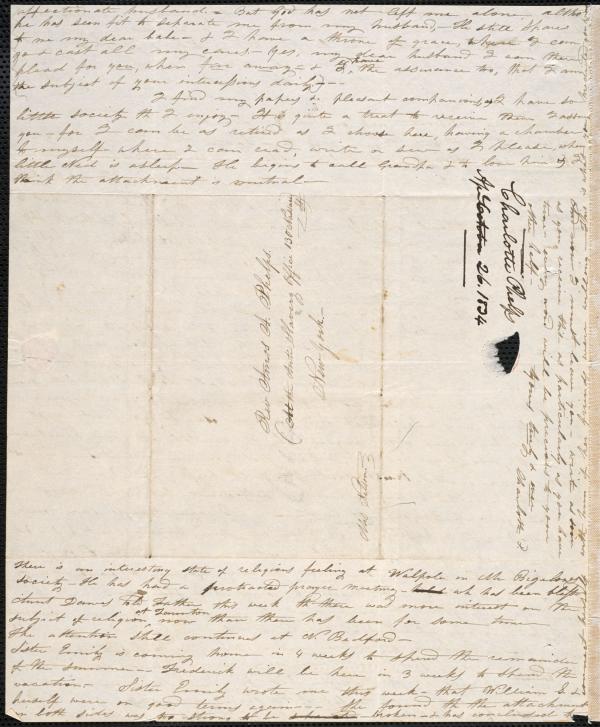 affectionate husband. - But God has not left me alone altho
he has seen fit to separate me from my husband, - He still spares
to me my dear babe - & I have a throne of grace, where I can
go & cast all my cares - Yes, my dear husband I can there
plead for you, when far away - & I have the assurance too, that I am
the subject of your intercessions daily. -
I find my papers pleasant companions, as I have so
little society th I enjoy - It is quite a treat to receive them I assure
you - for I can be as retired as I choose here, having a chamber
to myself where I can read, write or sew as I please, when
little Ned is asleep - He begins to call Grandpa & to love him & I
think the attachment is mutual -
Charlotte Phelps
26. 1834
And now I must leave you - write as soon
as you receive this as particularly as you have
time - every word will be precious to your
Yours truly &
Charlotte P
Rev Amos A. Phelps.
(At the Anti Slavery Office 130 Nassau
St
New York
There is an interesting state of religious feeling at Walpole in Mr Bigelows
Society - He has had a protracted prayer meeting wh has been blest
Aunt Daws told Father this week th there was more interest on the
subject of religion at Taunton now than there has been for some time
The attention still continues at N. Bedford -
Sister Emily is coming home in 4 weeks to spend the remainder
of the summer - Frederick will be here in 3 weeks to spend the
vacation - Sister Emily wrote me this week that William &
herself were on good terms again - She found th the attachment
on both sides was too strong to be broken